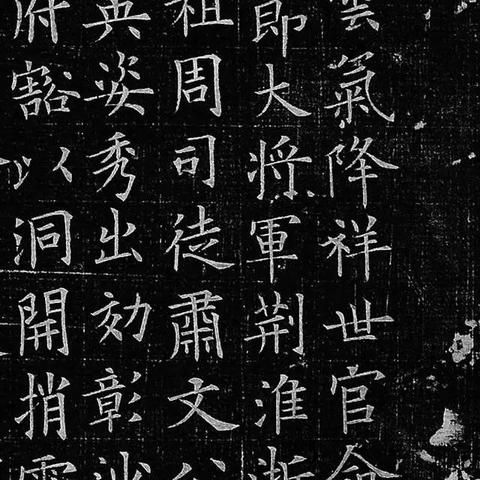 雲氣降祥世官命
即大將軍荊淮浙
祖周司徒肅文公
英姿秀出効彰沙
府豁以洞開捎雲